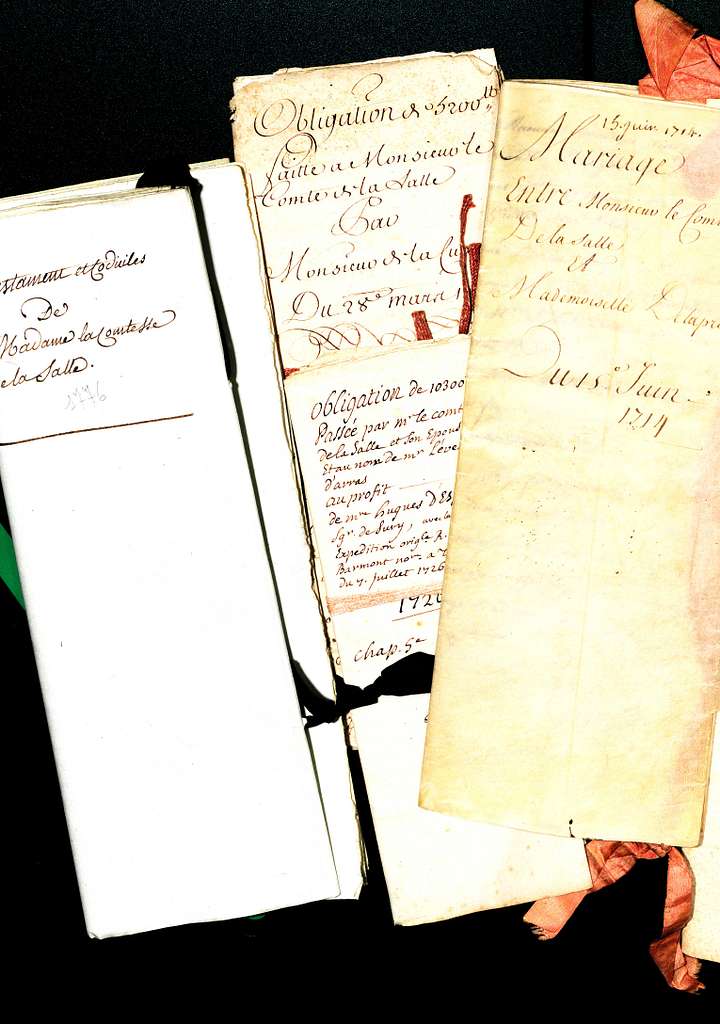 stament et Codiciles
De
Madame la Comtesse
e la Salle.
1776
Obligation de 5200ᵗᵗ
faitte a Monsieur le
Comte de la Salle
Par
Monsieur de la
Du 28ᵉ mars 1
Obligation de 10300
Passée par mʳ le comt
de la Salle et son Epous
Et au nom de mʳ Léve
d'arras
au profit
de mʳᵉ hugues D'Es
Sgʳ. de
Expedition origˡᵉ R.
Barmont noʳᵉ. a
du 7. juillet 1726
172
chap. 5ᵉ
15. juin 1714.
Mariage
Entre Monsieur le Com
De la Salle
Et
Mademoiselle
Du 15.ᵉ Juin
1714